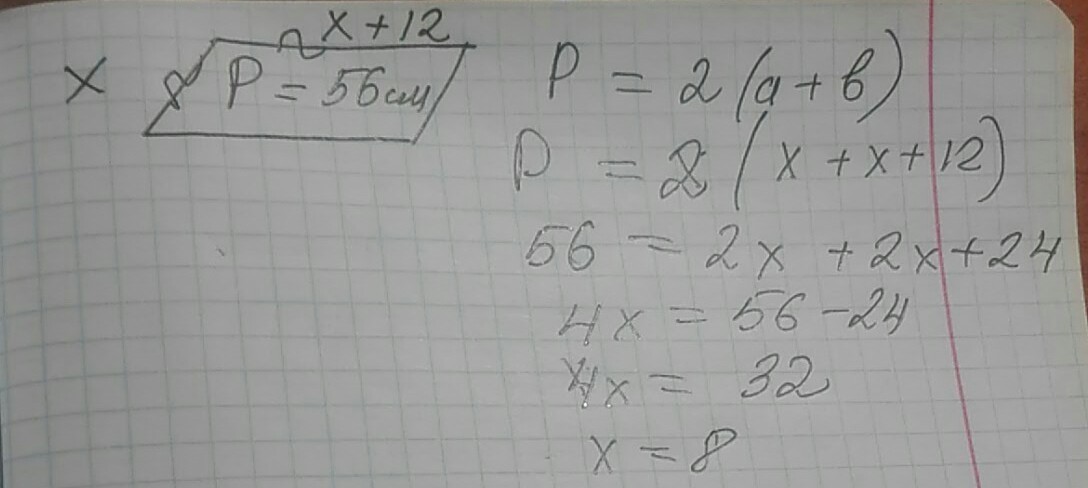 x + 12
x
P = 56 см
P = 2 (a + b)
P = 2 (x + x + 12)
56 = 2x + 2x + 24
4x = 56 - 24
4x = 32
x = 8